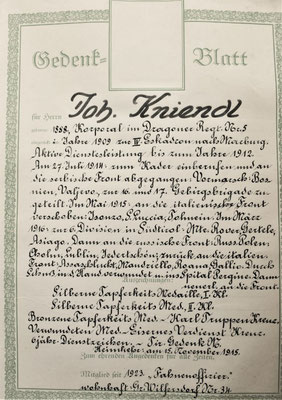 Gedenk-Blatt
für Herrn
Joh. Kniendl
1888, Korporal im Dragoner Regt. Nr. 5
i. Jahre 1909 zur III. Eskadron nach Marburg.
Aktive Dienstleistung bis zum Jahre 1912.
Am 27. Juli 1914 zum Kader einberufen und an
die serbische Front abgegangen. Vormarsch: Bos
nien, Valjevo, zur 16. und 17. Gebirgsbrigade zu
geteilt. Im Mai 1915 an die italienische Front
verschoben: Isonzo, S. Luccia, Tolmein. Im März
1916 zur 6. Division in Südtirol: Mte. Rover, Gertele,
Asiago. Dann an die russische Front: Russ. Polen
Cholm, Lublin, zurück an die italien.
Front: Mandriello, Roana, Gallio. Durch
Schuß in d. Hand verwundet ins Spital Pergine. Dann
neuerl. an die Front.
Silberne Tapferkeits Medaille, I. Kl.
Silberne Tapferkeits Med. II. Kl.
Bronzene Tapferkeits Med. - Karl Truppen Kreuz.
Verwundeten Med. - Eisernes Verdienst Kreuz.
6jähr. Dienstzeichen. - Tir. Gedenk M.
Heimkehr am 15. November 1918.
Zum ehrenden Angedenken für alle Zeiten.
Mitglied seit 1923. "Fahnenoffizier".
wohnhaft Gr. Wilfersdorf Nr. 34